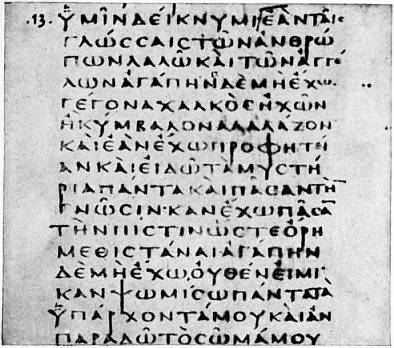 .13. ΫΜΙΝΔΕΙΚΝΥΜΙΕΑΝΤΑΙC
ΓΛΩCCΑΙCΤΩΝΑΝΘΡΩ
ΠΩΝΛΑΛΩΚΑΙΤΩΝΑΓΓΕ
ΛΩΝΑΓΑΠΗΝΔΕΜΗΕΧΩ
ΓΕΓΟΝΑΧΑΛΚΟCΗΧΩΝ
ΗΚΥΜΒΑΛΟΝΑΛΑΛΑΖΟΝ
ΚΑΙΕΑΝΕΧΩΠΡΟΦΗΤΕΙ
ΑΝΚΑΙΕΙΔΩΤΑΜΥCΤΗ
ΡΙΑΠΑΝΤΑΚΑΙΠΑCΑΝΤΗ̅
ΓΝΩCΙΝ·ΚΑΝΕΧΩΠΑCΑ̅
ΤΗΝΠΙCΤΙΝΩCΤΕΟΡΗ
ΜΕΘΙCΤΑΝΑΙ·ΑΓΑΠΗΝ
ΔΕΜΗΕΧΩ,ΟΥΘΕΝΕΙΜΙ
ΚΑΝΨΩΜΙCΩΠΑΝΤΑΤΑ
ΫΠΑΡΧΟΝΤΑΜΟΥΚΑΙΑΝ
ΠΑΡΑΔΩΤΟCΩΜΑΜΟΥ